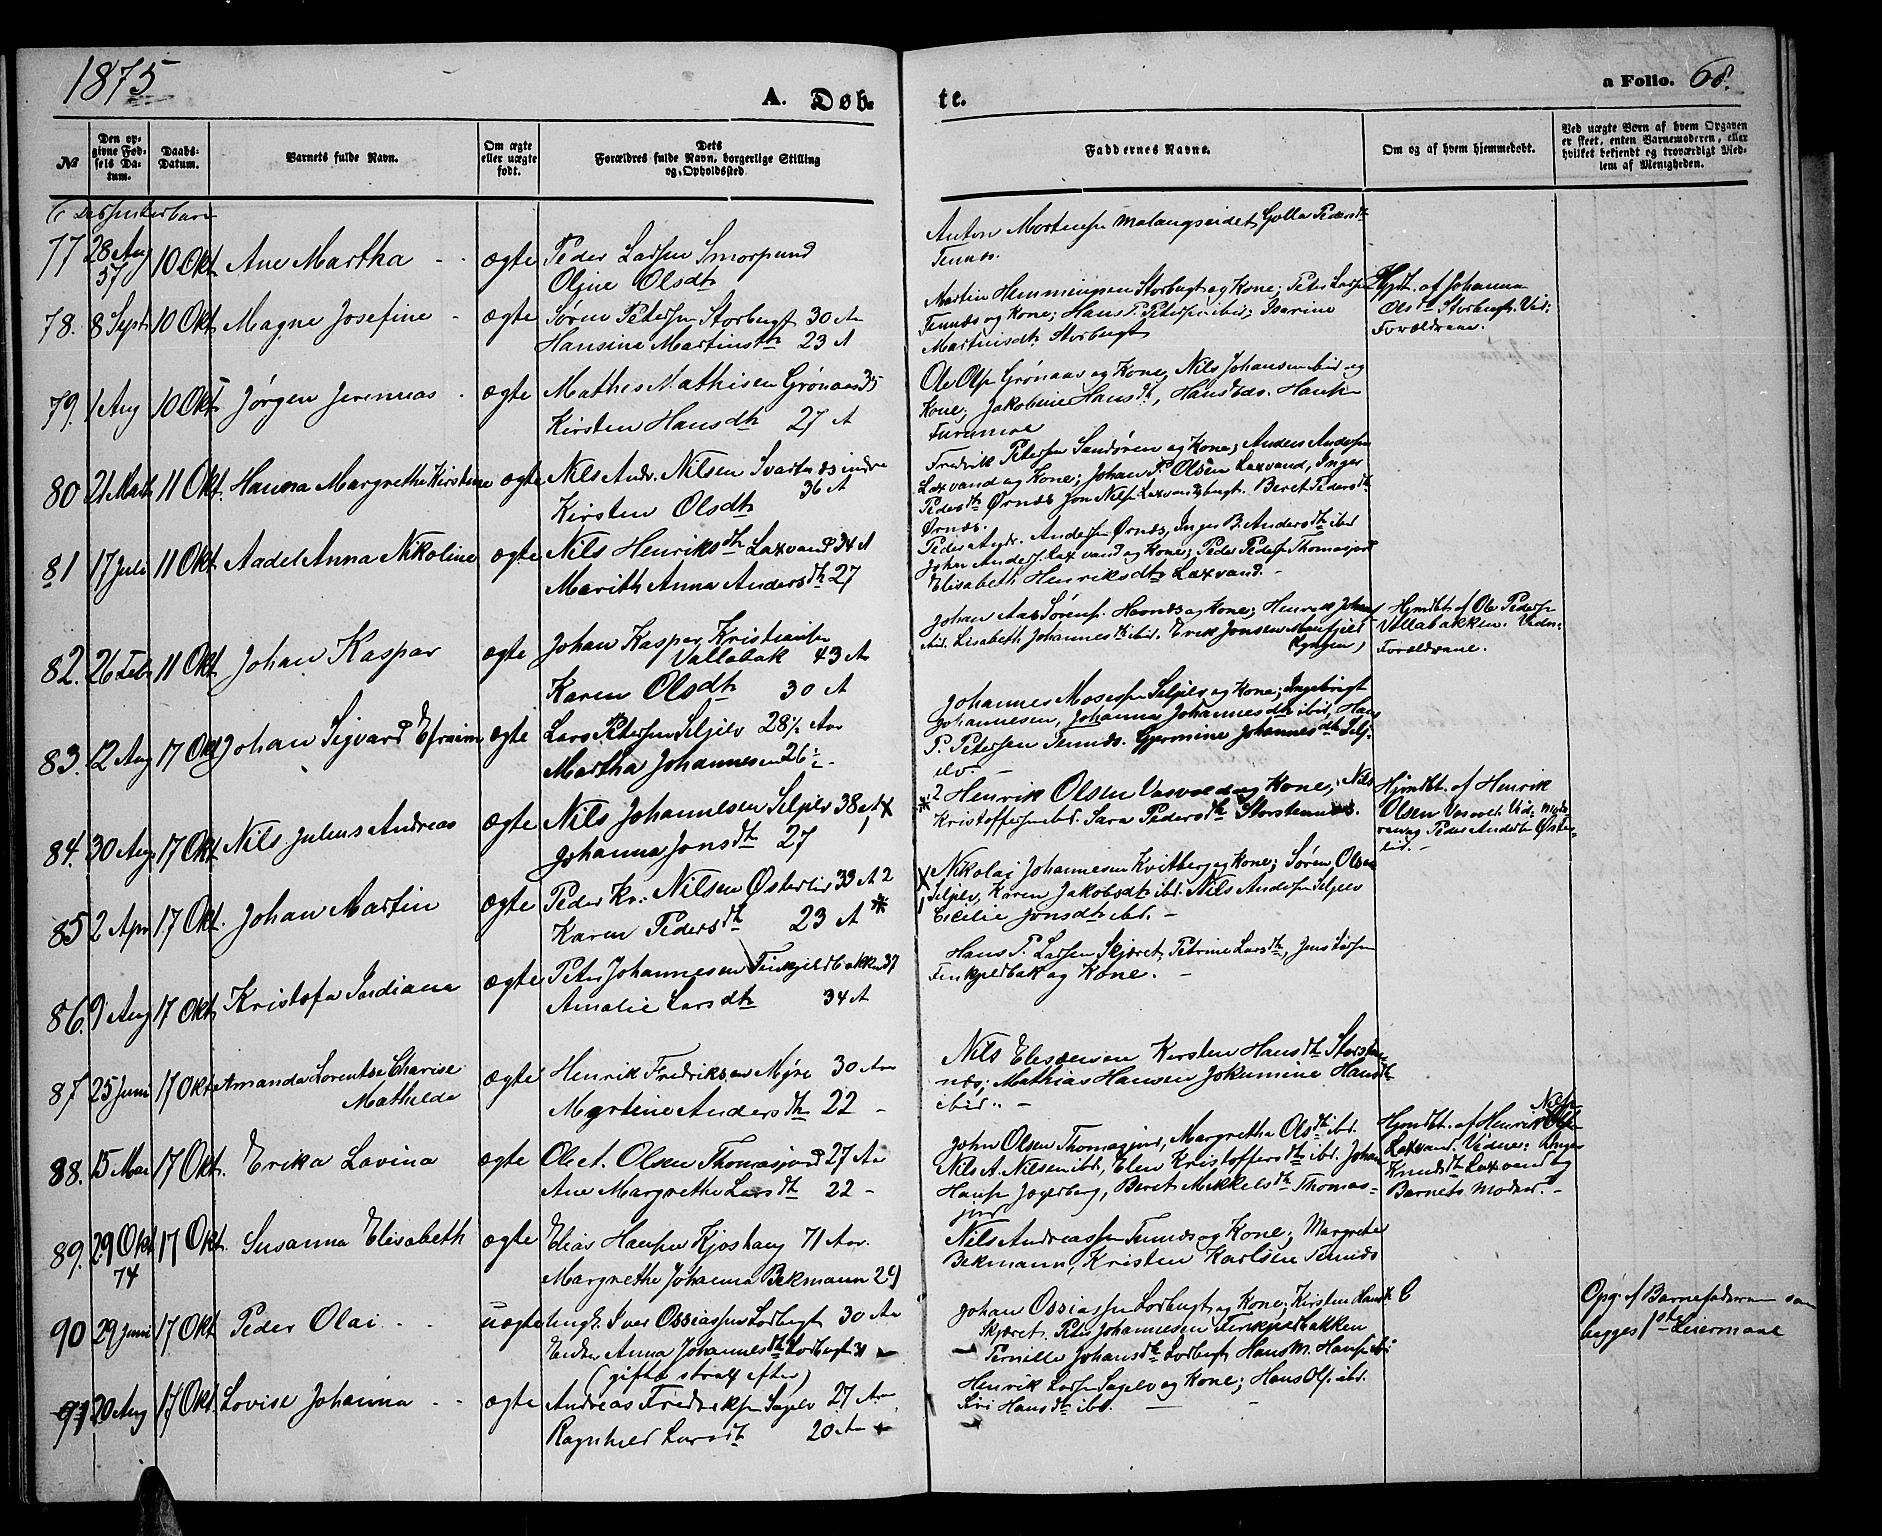 1875
A. Døb-
te.
a Folio. 68.
№
Den op-
givne Fød-
sels Da-
tum.
Daabs-
Datum.
Barnets fulde Navn.
Om ægte
eller uægte
født.
Dets
Forældres fulde Navn, borgerlige Stilling
og Opholdssted
Faddernes Navne.
Om og af hvem hjemmedøbt.
Ved uægte Børn af hvem Opgaven
er skeet, enten Barnemoderen, eller
hvilket bekjendt og troværdigt Med-
lem af Menigheden.
77 28 Aug 57 10 Okt Ane Martha - - ægte Peder Larsen
Oline Olsdtr
Anton Malangseidet, Golla Pedersdtr
Tennæs.
78. 8 Sept 10 Okt Magne Josefine - ægte Søren Petersen Storbugt 30 Aar
Hansine Martinsdtr 23 A
Martin Hemmingsen Storbugt og Kone; Peter Larsen
Tennæs og Kone; Hans P. Petersen ibid; Isarine
Martinisdtr Storbugt
Hjdt. af Johanna
Olsdtr Storbugt. Vid:
Forældrene.
79. 1 Aug 10 Okt Jørgen Jeremias - ægte Mathis Mathisen Grønaas 35
Kirsten Hansdtr 27 A
Ole Olsen Grønaas og Kone, Nils Johansen ibid og
Kone; Jakobine Hansdtr,
Furumoe
80 21 Mai 11 Okt. Hanna Margrethe Kirstine ægte Nils Andr. Nilsen Svartnæs indre
36 A
Kirsten Olsdtr
Fredrik Petersen Sandøren og Kone; Anders Andersen
Laxvand og Kone; Johan P. Olsen Laxvand, Inger
Pedersdtr Ørnæs Jon Nilsen Laxvandsbugt. Beret Pedersdtr
Ørnæs.
81 17 Juli 11 Okt Aadel Anna Nikoline ægte Nils Henriksdtr Laxvand 34 A
Marith Anna Andersdtr 27
Peder Andr. Andersen Ørnæs, Inger B. Andersdtr ibid
Johan Anders. Laxvand og Kone; Peder Pedersen Thomasjord
Elisabeth Henriksdtr Laxvand. -
82. 26 Feb 11 Okt Johan Kaspar ægte Johan Kaspar Kristiansen
Vollabak 43 A
Karen Olsdtr 30 A
Johan Aas Sørens. Havnæs og Kone; Henrik Johans
ibid. Lisabeth Johannesdtr ibid. Erik Jonsen Manfjell
(Lyngen)
Hjmdbt. af Ole Pedersen
Vollabakken. Vidn:
Forældrene.
83. 12 Aug 17 Okt Johan Sigvard Efraim ægte Lars Petersen Seljelv 28½ Aar
Martha Johannesen 26½ -
Johannes Mosesen Seljelv og Kone; Ingebrigt
Johannesen, Johanna Johannesdtr ibid, Hans
P. Petersen Tennæs. Gjermine Johannesdtr Selj-
elv. -
84. 30 Aug 17 Okt. Nils Julius Andreas ægte Nils Johannesen Seljelv 38 A
Johanna Jonsdtr 27
2 Henrik Olsen Vasvold og Kone; Nils
Kristoffersen ibid. Sara Pedersdtr Storstennæs.
Hjmdbt. af Henrik
Olsen Vasvold. Vid: Mode-
ren og Peder Anders. Øster-
lid. -
85 2 Apr 17 Okt. Johan Martin ægte Peder Kr. Nilsen Østerlid 33 A 2
Karen Pedersdtr 23 A *
Nikolai Johannesen Kvitberg og Kone; Søren Olsen
Seljelv, Karen Jakobsdtr ibid. Nils Andersen Seljelv
Cecilie Jonsdtr ibid. -
86. 9 Aug 17 Okt Kristofa Indiana ægte Peter Johannesen Finkjeldbakken 37
Amalie Larsdtr 34 A
Hans P. Larsen Skjæret, Petrine Larsdtr, Jens Larsen
Finkjeldbak og Kone. -
87 25 Juni 17 Okt Amanda Lorentze Charise
Mathilde
ægte Henrik Fredriksen Myre 30 Aar
Martine Andersdtr 22 -
Nils Elesæusen Kirsten Hansdtr Storsten-
næs; Mathias Hansen Jokumine Hansdtr
ibid. -
88. 15 Mai 17 Okt. Erika Lovina ægte Ole A. Olsen Thomasjord 27 Aar
Ane Margrethe Larsdtr 22 -
John Olsen Thomasjord, Margretha Olsdtr ibid.
Nils A. Nilsen ibid, Elen Kristoffersdtr ibid. Johan
Hansen Jogerberg, Beret Mikkelsdtr Thomas-
jord
Hjmdbt. af Henrik Nilsen
Laxvand. Vidne: Inger
Knudsdtr Laxvand og
Barnets Moder. -
89. 29 Okt 74 17 Okt. Susanna Elisabeth ægte Elias Hansen Kjoshaug 71 Aar.
Margrethe Johanna Bekmann 29
Nils Andreassen Tennæs og Kone; Margrete
Bekmann, Kristen Karlsen Tennæs
90 29 Juni 17 Okt Peder Olai - - uægte Ungk. Iver Ossiassen Lodbugt 30 Aar
Enke Anna Johannesdtr Lodbugt 31
(gifte strax efter)
Johan Ossiassen Lodbugt og Kone; Kirsten Hansdtr
Skjæret. Peter Johannesen Finkjeldbakken
Pernille Johansdtr Lodbugt Hans M. Hansen ibid
Opg. af Barnefaderen som
begges 1ste Leiermaal
91 20 Aug 17 Okt. Lovise Johanna - - ægte Andreas Fredriksen Sagelv 27 Aar
Ragnhild Larsdtr 20 Aar
Henrik Larsen Sagelv og Kone; Hans Ols. ibid.
Siri Hansdtr ibid.